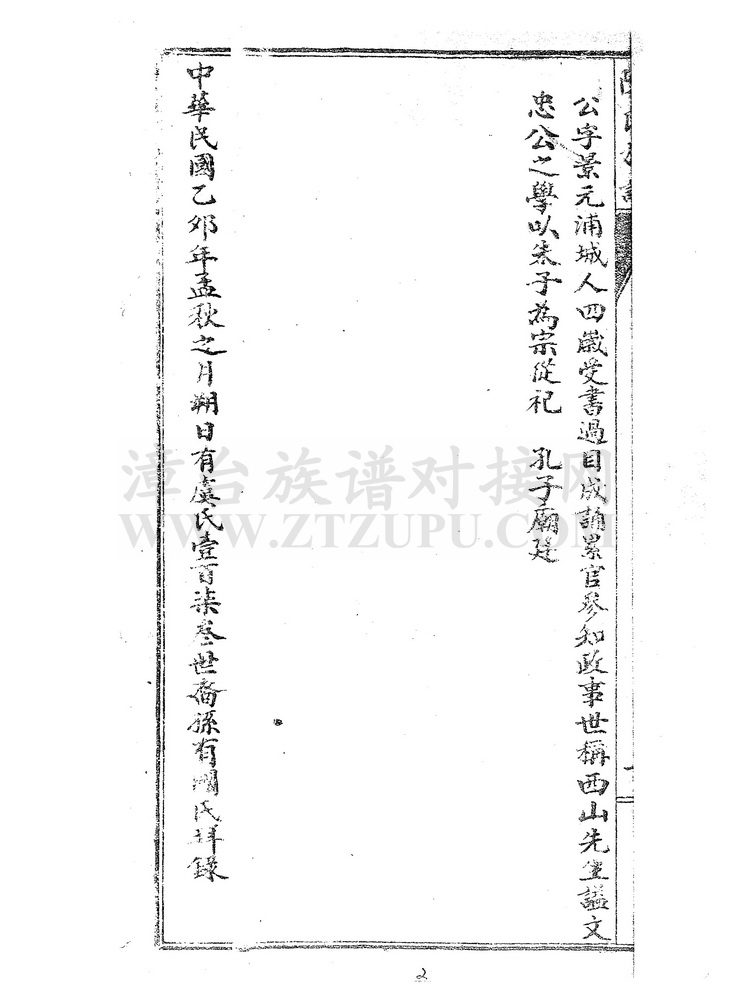 公字景元浦城人四歲受書過目成誦累官參知政事世稱西山先生謚文
忠公之學以朱子為宗從祀 孔子廟廷
中華民國乙卯年孟秋之月朔日有虞氏壹百柒叁世裔孫有

氏拜錄
漳台族谱对接网
WWW.ZTZUPU.COM
2